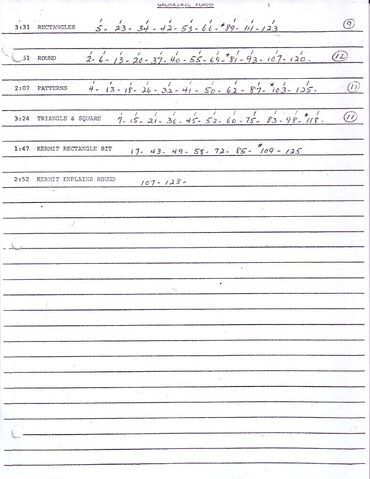 GEOMETRIC FORMS
3:31 RECTANGLES 5- 23- 34- 42- 53- 66- *89- 111- 123 9
:31 ROUND 2- 6- 13- 26- 37- 40- 55- 69- *81- 92- 107- 120. 12
2:07 PATTERNS 4- 13- 18- 26- 32- 41- 50- 62- 87- *103- 125. 11
3:24 TRIANGLE & SQUARE 7- 15- 21- 36- 45- 52- 60- 75- 83- 98- *118. 11
1:47 KERMIT RECTANGLE BIT 17- 43- 49- 58- 72- 85- *109- 125
2:52 KERMIT EXPLAINS ROUND 107- 128-